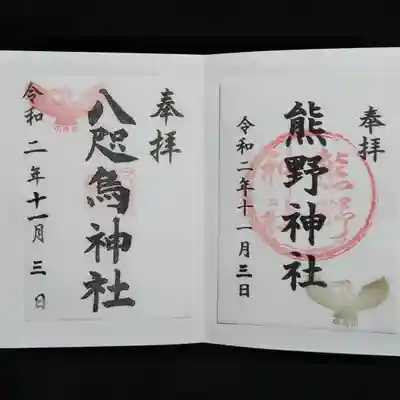 奉拝
熊野神社
令和二年十一月三日
熊野
神社
奉拝
八咫烏神社
令和二年十一月三日